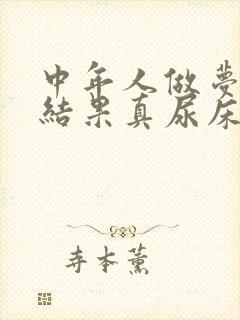 中年人做夢
結果真尿床
寺本薰